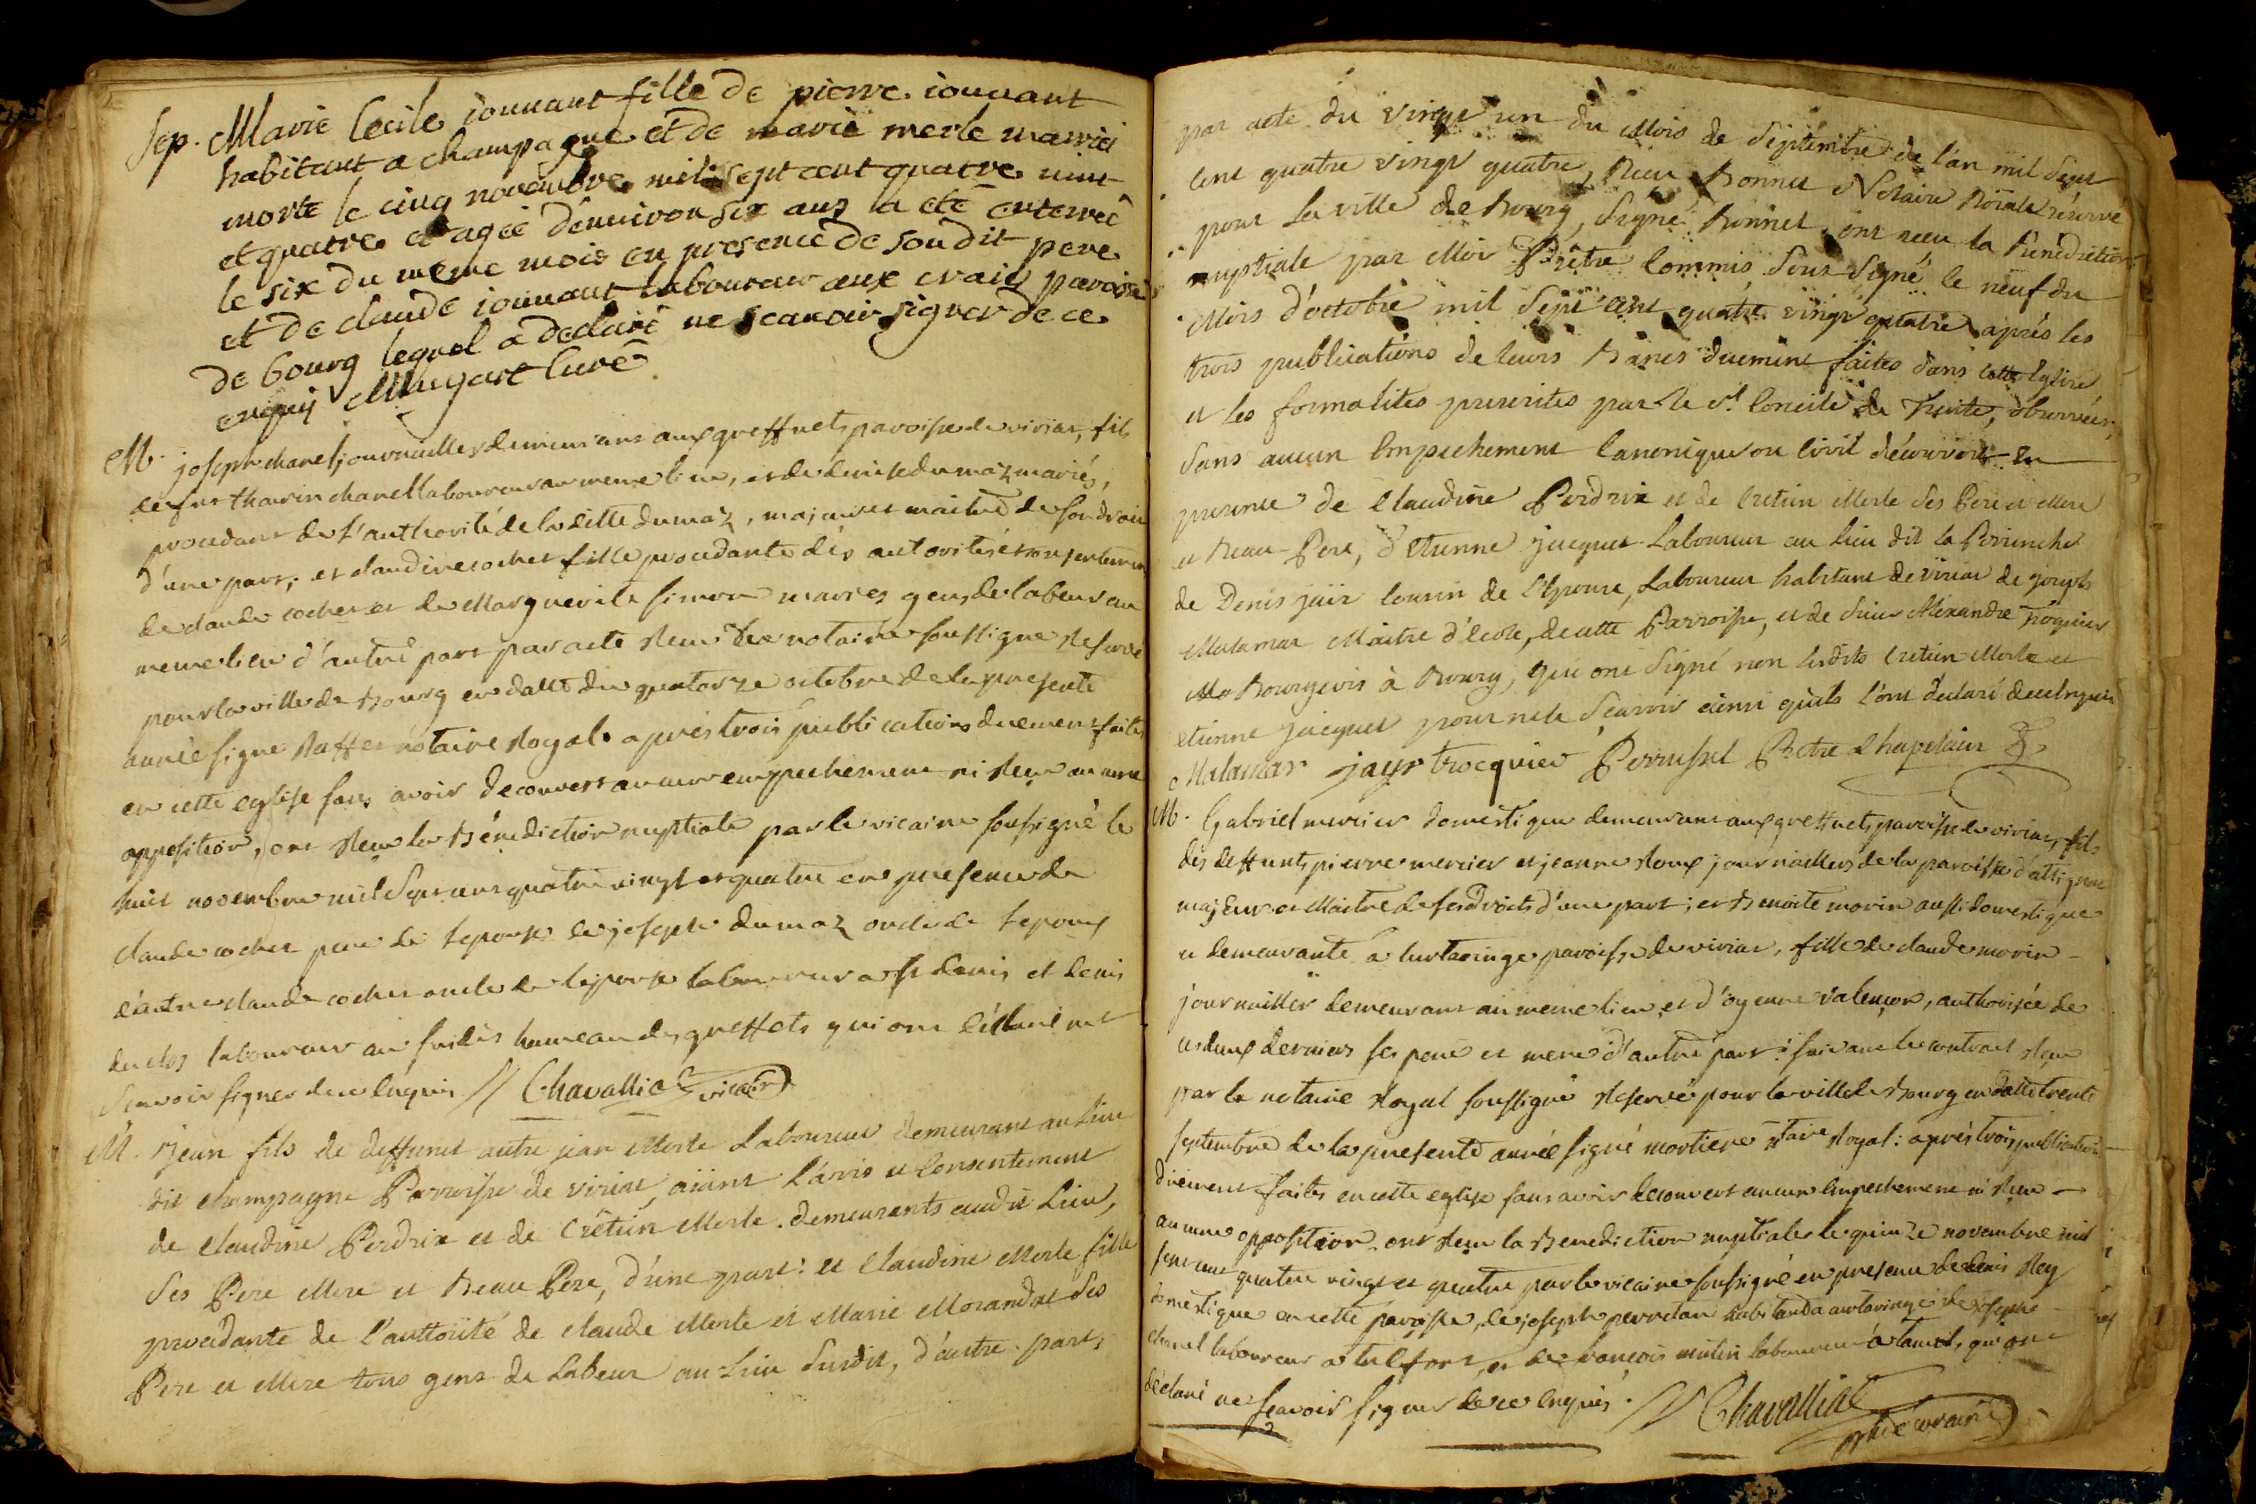 Sep. Marie Cecile jouuant fille de pierre jouuant
habitant a champagne et de marie merle mariéi
morte le cinq novembre mil sept cent quatre vint
et quatre et agée denuiron six ans a eté enterreé
le six du meme mois en presence de son dit pere
et de claude jouuant laboureur aux craits paroisse
de bourg lequel a declaré ne scauoir signer de ce
enquis Maugart Curé
M. joseph chanel journaillier demeurant aux greffnets paroisse de viriat, fils
de fut thavrin chanel laboureur au meme lieu, et de denise dumaz mariés,
procedant de l'authorité de la ditte dumaz, majeur et maitre de ses droits
d'une part; et claudine cochet fille procedante dés autorités et consentement
de claude cochet et de Marguerite simon mariés gens de labeur au
meme lieu d'autre part par acte Reçu le notaire soussigné Reservé
pour la ville de Bourg en datte du quatorze octobre de la presente
année signé Raffet notaire Royal. aprés trois publications duement faites
en cette eglise sans avoir decouvert aucun empechement ni Reçu aucune
opposition, ont Reçu la Bénediction nuptiale par le vicaire soussigné le
huit novembre mil Sept cent quatre vingt et quatre en presence de
claude cochet pere de l'epouse de joseph dumaz oncle de l'epoux
d'autre claude cochet oncle de l'epouse laboureur a st denis et denis
duclos laboureur au hameau des greffets qui ont déclaré ne
Scavoir signer de ce Enquis // Chavallié vicaire
M. Jean fils de deffunct autre jean Merle Laboureur demeurant au Lieu
dit champagne Parroisse de viriat, aiant l'avis et Consentement
de Claudine Perdrix et de Crétin Merle demeurants audit Lieu,
Ses Pere Mere et Beau Pere, d'une part: et Claudine Merle fille
procedante de l'authorité de claude Merle et Marie Morandat Ses
Pere et Mere tous gens de Labeur au Lieu Susdit, d'autre part;
par acte du vingt un du Mois de Septembre de l'an mil Sept
Cent quatre vingt quatre, Recu Bonnet Notaire Roiale réservé
pour la ville de Bourg, Signé Bonnet, ont recu la Bénédiction
nuptiale par Moi Prêtre Commis Sous Signé le neuf du
Mois d'octobre mil Sept cent quatre vingt quatre aprés les
trois publications de leurs Banes duement faites dans cette Eglise
et les formalités prescrites par le St Concile de Trente, observées,
Sans aucun Empechement Canonique ou Civil découvert En
presence de Claudine Perdrix et de Cretin Merle Ses Pere et Mere
et Beau-Pere, d'Etienne Jacquet Laboureur au Lieu dit la
de Denis jaïr Cousin de l'Epouse, Laboureur habitant de viriat de joseph
Malamar Maitre d'école, de cette Parroisse, et de Sieur Alexandre
Bourgeois à Bourg, qui ont Signé non lesdits Cretin Merle et
etienne Jacquet pour ne le Scavoir ainsi quils l'ont declaré de ce Enquis
Malamar jayr trocquier Perrussel Pretre Chapelain
M. Gabriel mercier Domestique demeurant aux greffnets paroisse de viriat, fils
dés deffunts pierre mercier et jeanne Roux journailiers de la paroisse d'attignat
majeur et Maitre de ses droits d'une part; et Benoite morin aussi domestique
et demeurante a paroisse de viriat, fille de claude morin
journailier demeurant au meme lieu et d'oyenne valençon, authorisée de
ces deux derniers ses pere et mere d'autre part: suivant le contract Reçu
par le notaire Royal soussigné Reservé pour la ville de Bourg en datte trente
septembre de la presente année signé mortier notaire Royal: aprés trois publications
duement faites en cette eglise sans avoir decouvert aucun Empechement ni Reçu
aucune opposition ont Reçu la Benediction nuptiale le quinze novembre mil
sept cent quatre vingt et quatre par le vicaire soussigné en presence de denis Rey
domestique en cette paroisse, de joseph perrodan habitant a de joseph
chanel laboureur a tulfont et de françois mutin laboureur a qui ont
declaré ne Scavoir signer de ce enquis. // Chavallié